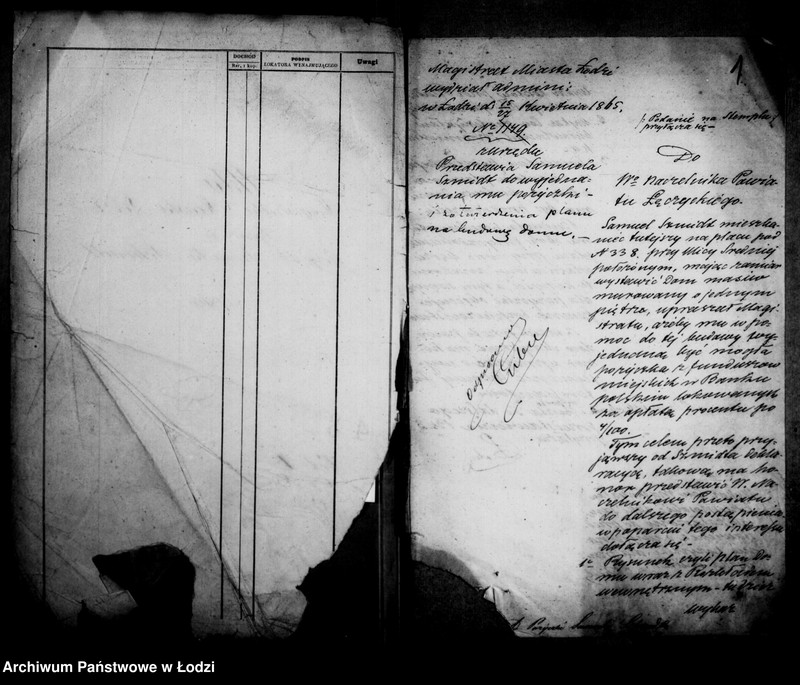 DOCHÓD
Rsr. i kop.
PODPIS
LOKATORA WYNAJMUJĄCEGO
Uwagi
1.
Magistrat Miasta Łodzi
wydział admini:
w Łodzi d. 15/27 Kwietnia 1865.
No 1149.
z urzędu
Przedstawia Samuela
Szmidt do wyjedna-
nia mu pożyczki -
i zatwierdzenia planu
na budowę domu. -
Podanie na Stemplu
przyłącza się -
Do
Wo Naczelnika Powia-
tu Łęczyckiego.
Samuel Szmidt mieszka-
niec tutejszy na placu pod
N 338. przy Ulicy Średniej
położonym, mając zamiar
wystawić Dom masiw
murowany o jednym
piętrze, upraszał Magi-
stratu, ażeby mu w po-
moc do tej budowy wy-
jednana być mogła
pożyczka z funduszów
miejskich w Banku
polskim lokowanych
za opłatą procentu po
4/100.
Tym celem przeto przy-
jąwszy od Szmidta dekla-
racyę, takową ma ho-
nor przedstawić W. Na-
czelnikowi Powiatu
do dalszego postąpienia
w poparciu tego interesu
dołącza się -
1o Rysunek czyli plan do-
mu wraz z
wewnętrznym -
wykaz
Archiwum Państwowe w Łodzi